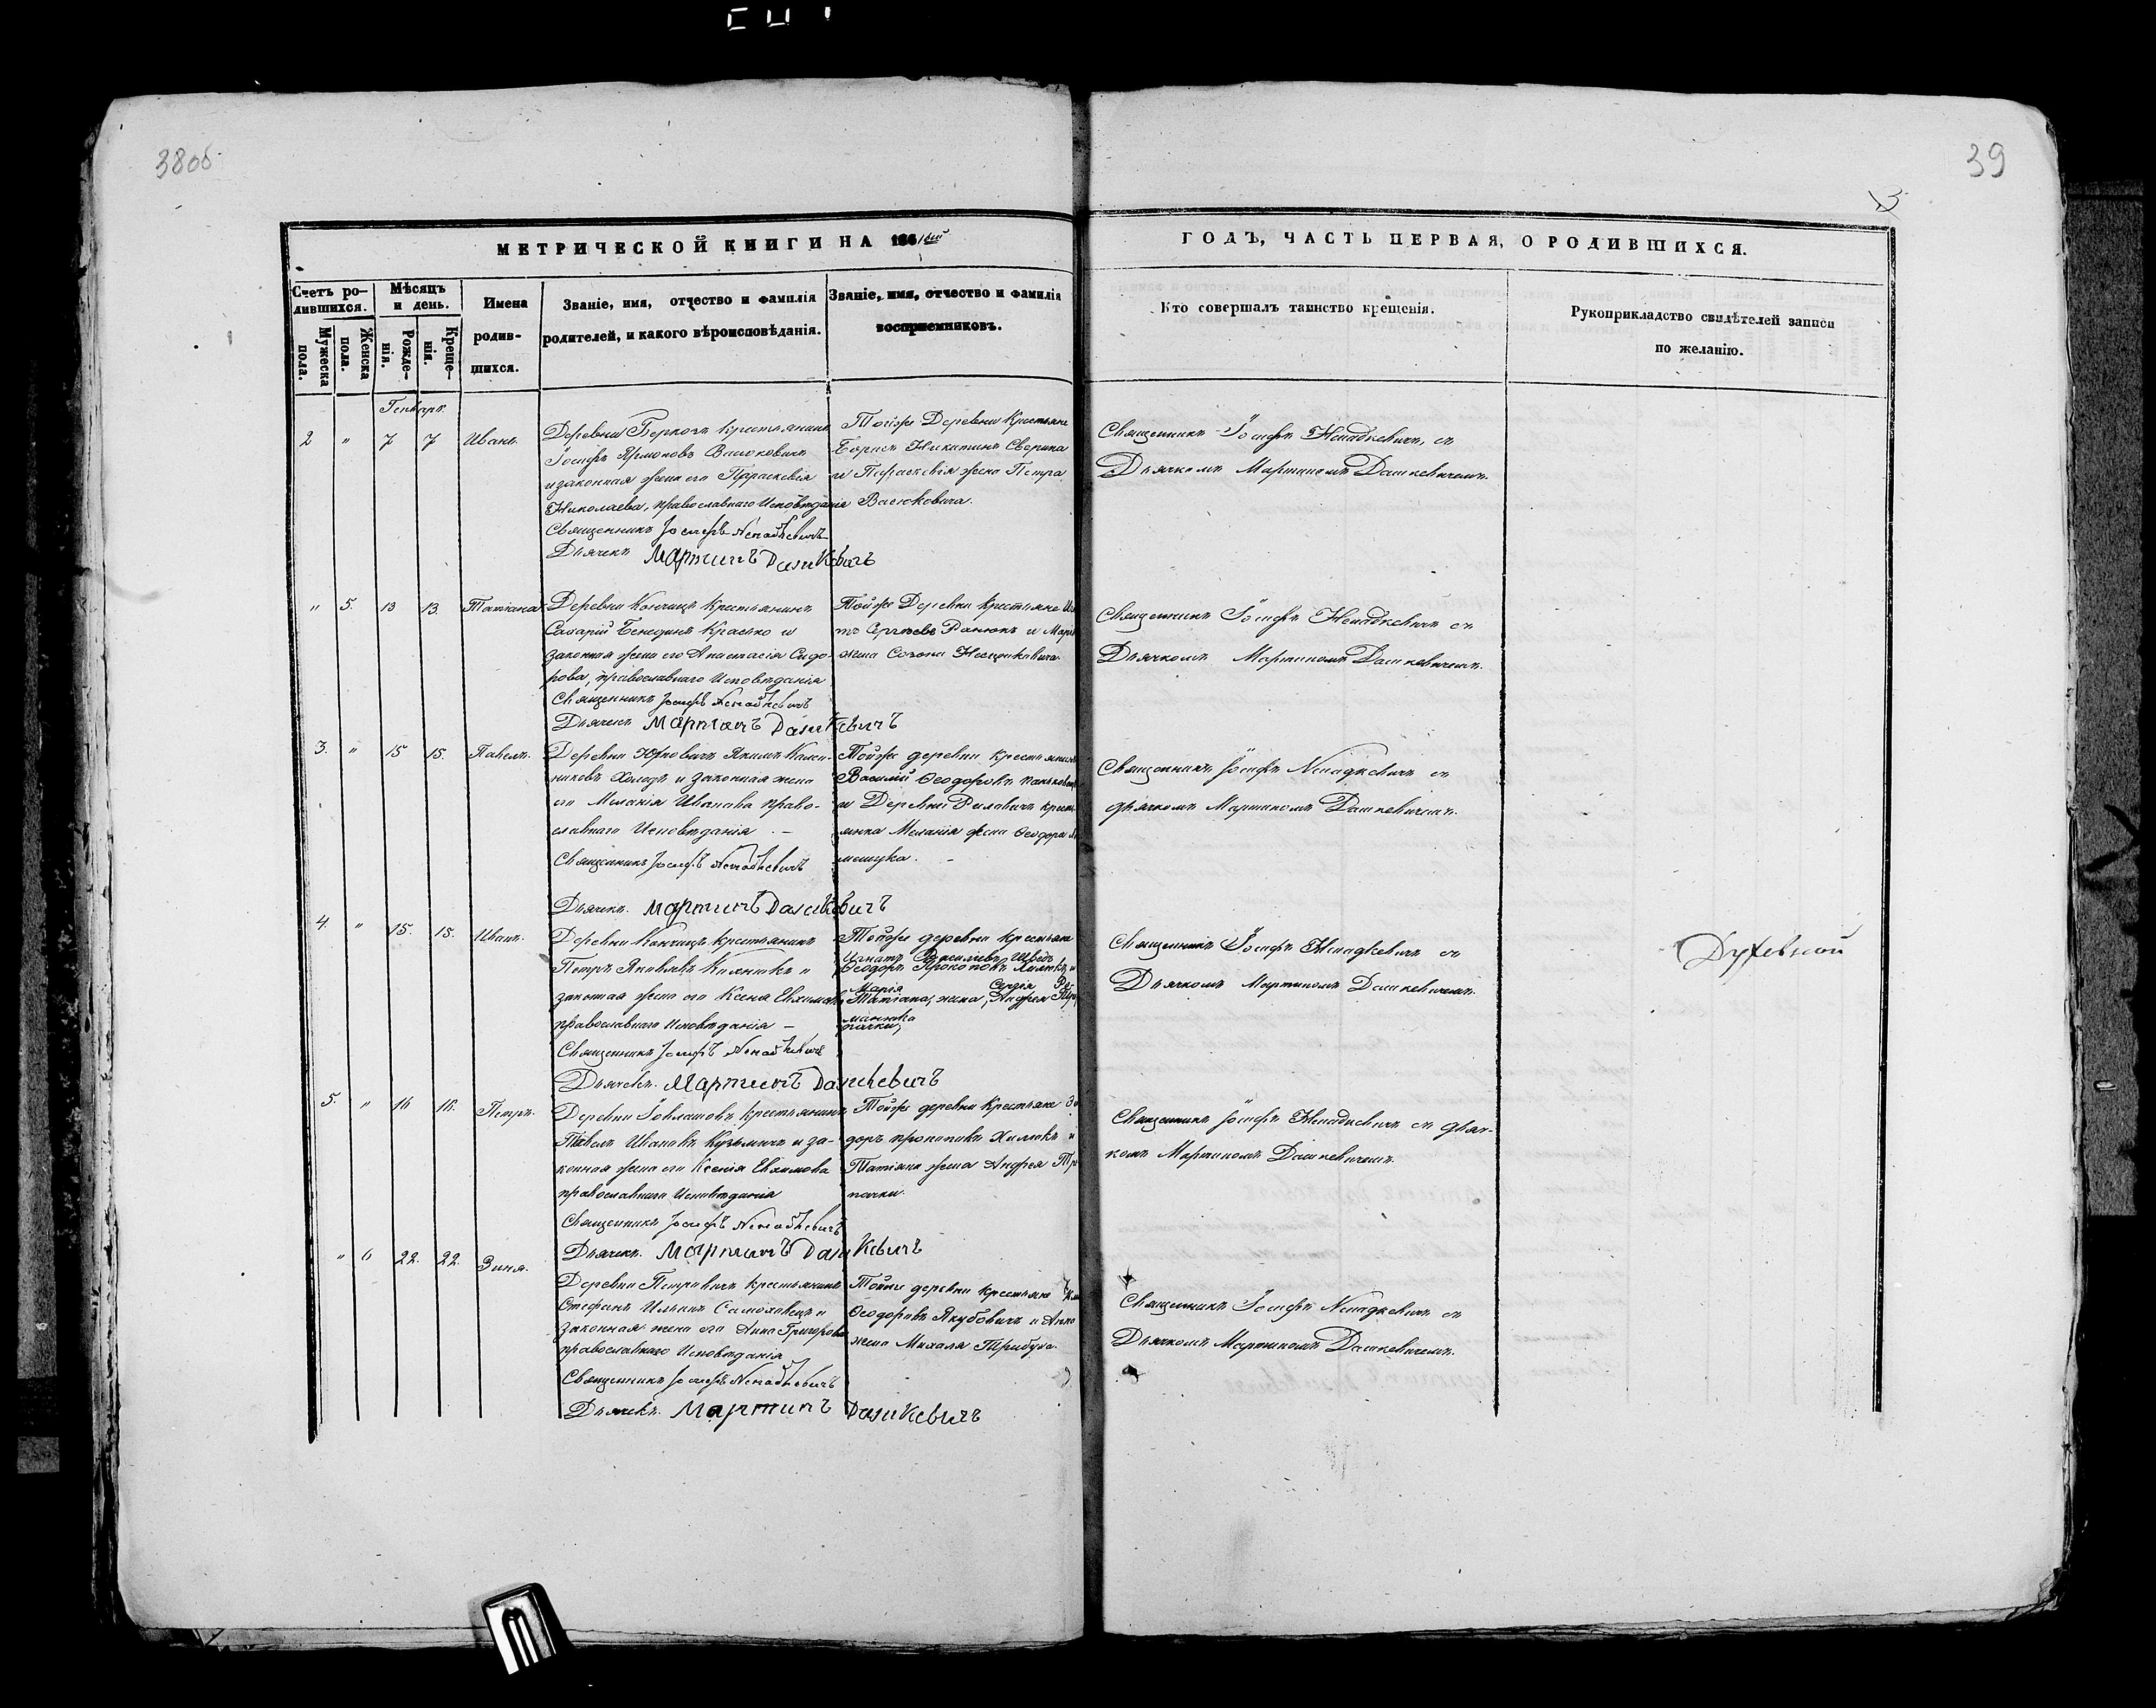 38об.
39
МЕТРИЧЕСКОЙ КНИГИ НА 1861ый
ГОДЪ, ЧАСТЬ ПЕРВАЯ, О РОДИВШИХСЯ.
Счетъ ро-
дившихся.
Мужеска пола.
Женска пола.
Мѣсяцъ
и день.
Рожде-
нія.
Креще-
нія.
Имена
родив-
шихся.
Званіе, имя, отчество и фамилія
родителей, и какого вѣроисповѣданія.
Званіе, имя, отчество и фамилія
воспріемниковъ.
Кто совершалъ таинство крещенія.
Рукоприкладство свидѣтелей записи
по желанію.
Генварь.
2 " 7 7 Иванъ.
Деревни крестьянинъ
Іосифъ Васюковичъ
и законная жена его Параскевія
Николаева, православнаго Исповѣданія
Священникъ Іосифъ Ненадкевичъ
Дьячекъ Мартинъ Дашкевичъ
Тойже Деревни Крестьяне
Борисъ Никитинъ Сверина
и Параскевія жена Петра
Васюковича.
Священникъ Іосифъ Ненадкевичъ, съ
Дьячкомъ Мартиномъ Дашкевичемъ.
" 5. 13 13. Татіана
Деревни Кончицъ Крестьянинъ
Захарій Бенединъ Красько и
законная жена его Анастасія Сидо-
рова, православнаго Исповѣданія
Священникъ Іосифъ Ненадкевичъ
Дьячекъ Мартинъ Дашкевичъ
Тойже Деревни Крестьяне
Сергѣевъ Ранюкъ и
жена Созона
Священникъ Іосифъ Ненадкевичъ съ
Дьячкомъ Мартиномъ Дашкевичемъ.
3. " 15 15. Павелъ.
Деревни Юзковичъ Якимъ Калин-
никовъ Холодъ и законная жена
его Меланія Иванова право-
славнаго Исповѣданія. —
Священникъ Іосифъ Ненадкевичъ
Дьячекъ. Мартинъ Дашкевичъ
Тойже деревни крестьянинъ
Василій Ѳеодоровъ
и Деревни
янка Меланія жена Ѳеодора
мещука. —
Священникъ Іосифъ Ненадкевичъ съ
дьячкомъ Мартиномъ Дашкевичемъ.
4. " 15. 15. Иванъ.
Деревни Кончицъ крестьянинъ
Петръ Яковлевъ и
законная жена его Ксенія Евхимова
православнаго Исповѣданія —
Священникъ Іосифъ Ненадкевичъ
Дьячекъ. Мартинъ Дашкевичъ
Тойже деревни крестьяне
Игнатъ Васильевъ Шведъ
Ѳеодоръ Прокоповъ Хилюкъ и
Марія
Татіана, жена, Андрея
Священникъ Іосифъ Ненадкевичъ съ
Дьячкомъ Мартиномъ Дашкевичемъ.
Духовной
5. " 16 16. Петръ.
Деревни крестьянинъ
Павелъ Ивановъ Кузьмичъ и за-
конная жена его Ксенія Евхимова
православнаго Исповѣданія
Священникъ Іосифъ Ненадкевичъ
Дьячекъ. Мартинъ Дашкевичъ
Тойже деревни крестьяне
доръ Прокоповъ Хилюкъ и
Татіана жена Андрея
Священникъ Іосифъ Ненадкевичъ съ дьяч-
комъ Мартиномъ Дашкевичемъ.
" 6 22. 22. Зиня.
Деревни Петровичъ крестьянинъ
Стефанъ Ильинъ и
законная жена его Анна Григорова
православнаго Исповѣданія
Священникъ Іосифъ Ненадкевичъ
Дьячекъ. Мартинъ Дашкевичъ
Тойже деревни крестьяне
Ѳеодоровъ Якубовичъ и Анна
жена Михаля Трибуха.
Священникъ Іосифъ Ненадкевичъ съ
Дьячкомъ Мартиномъ Дашкевичемъ.